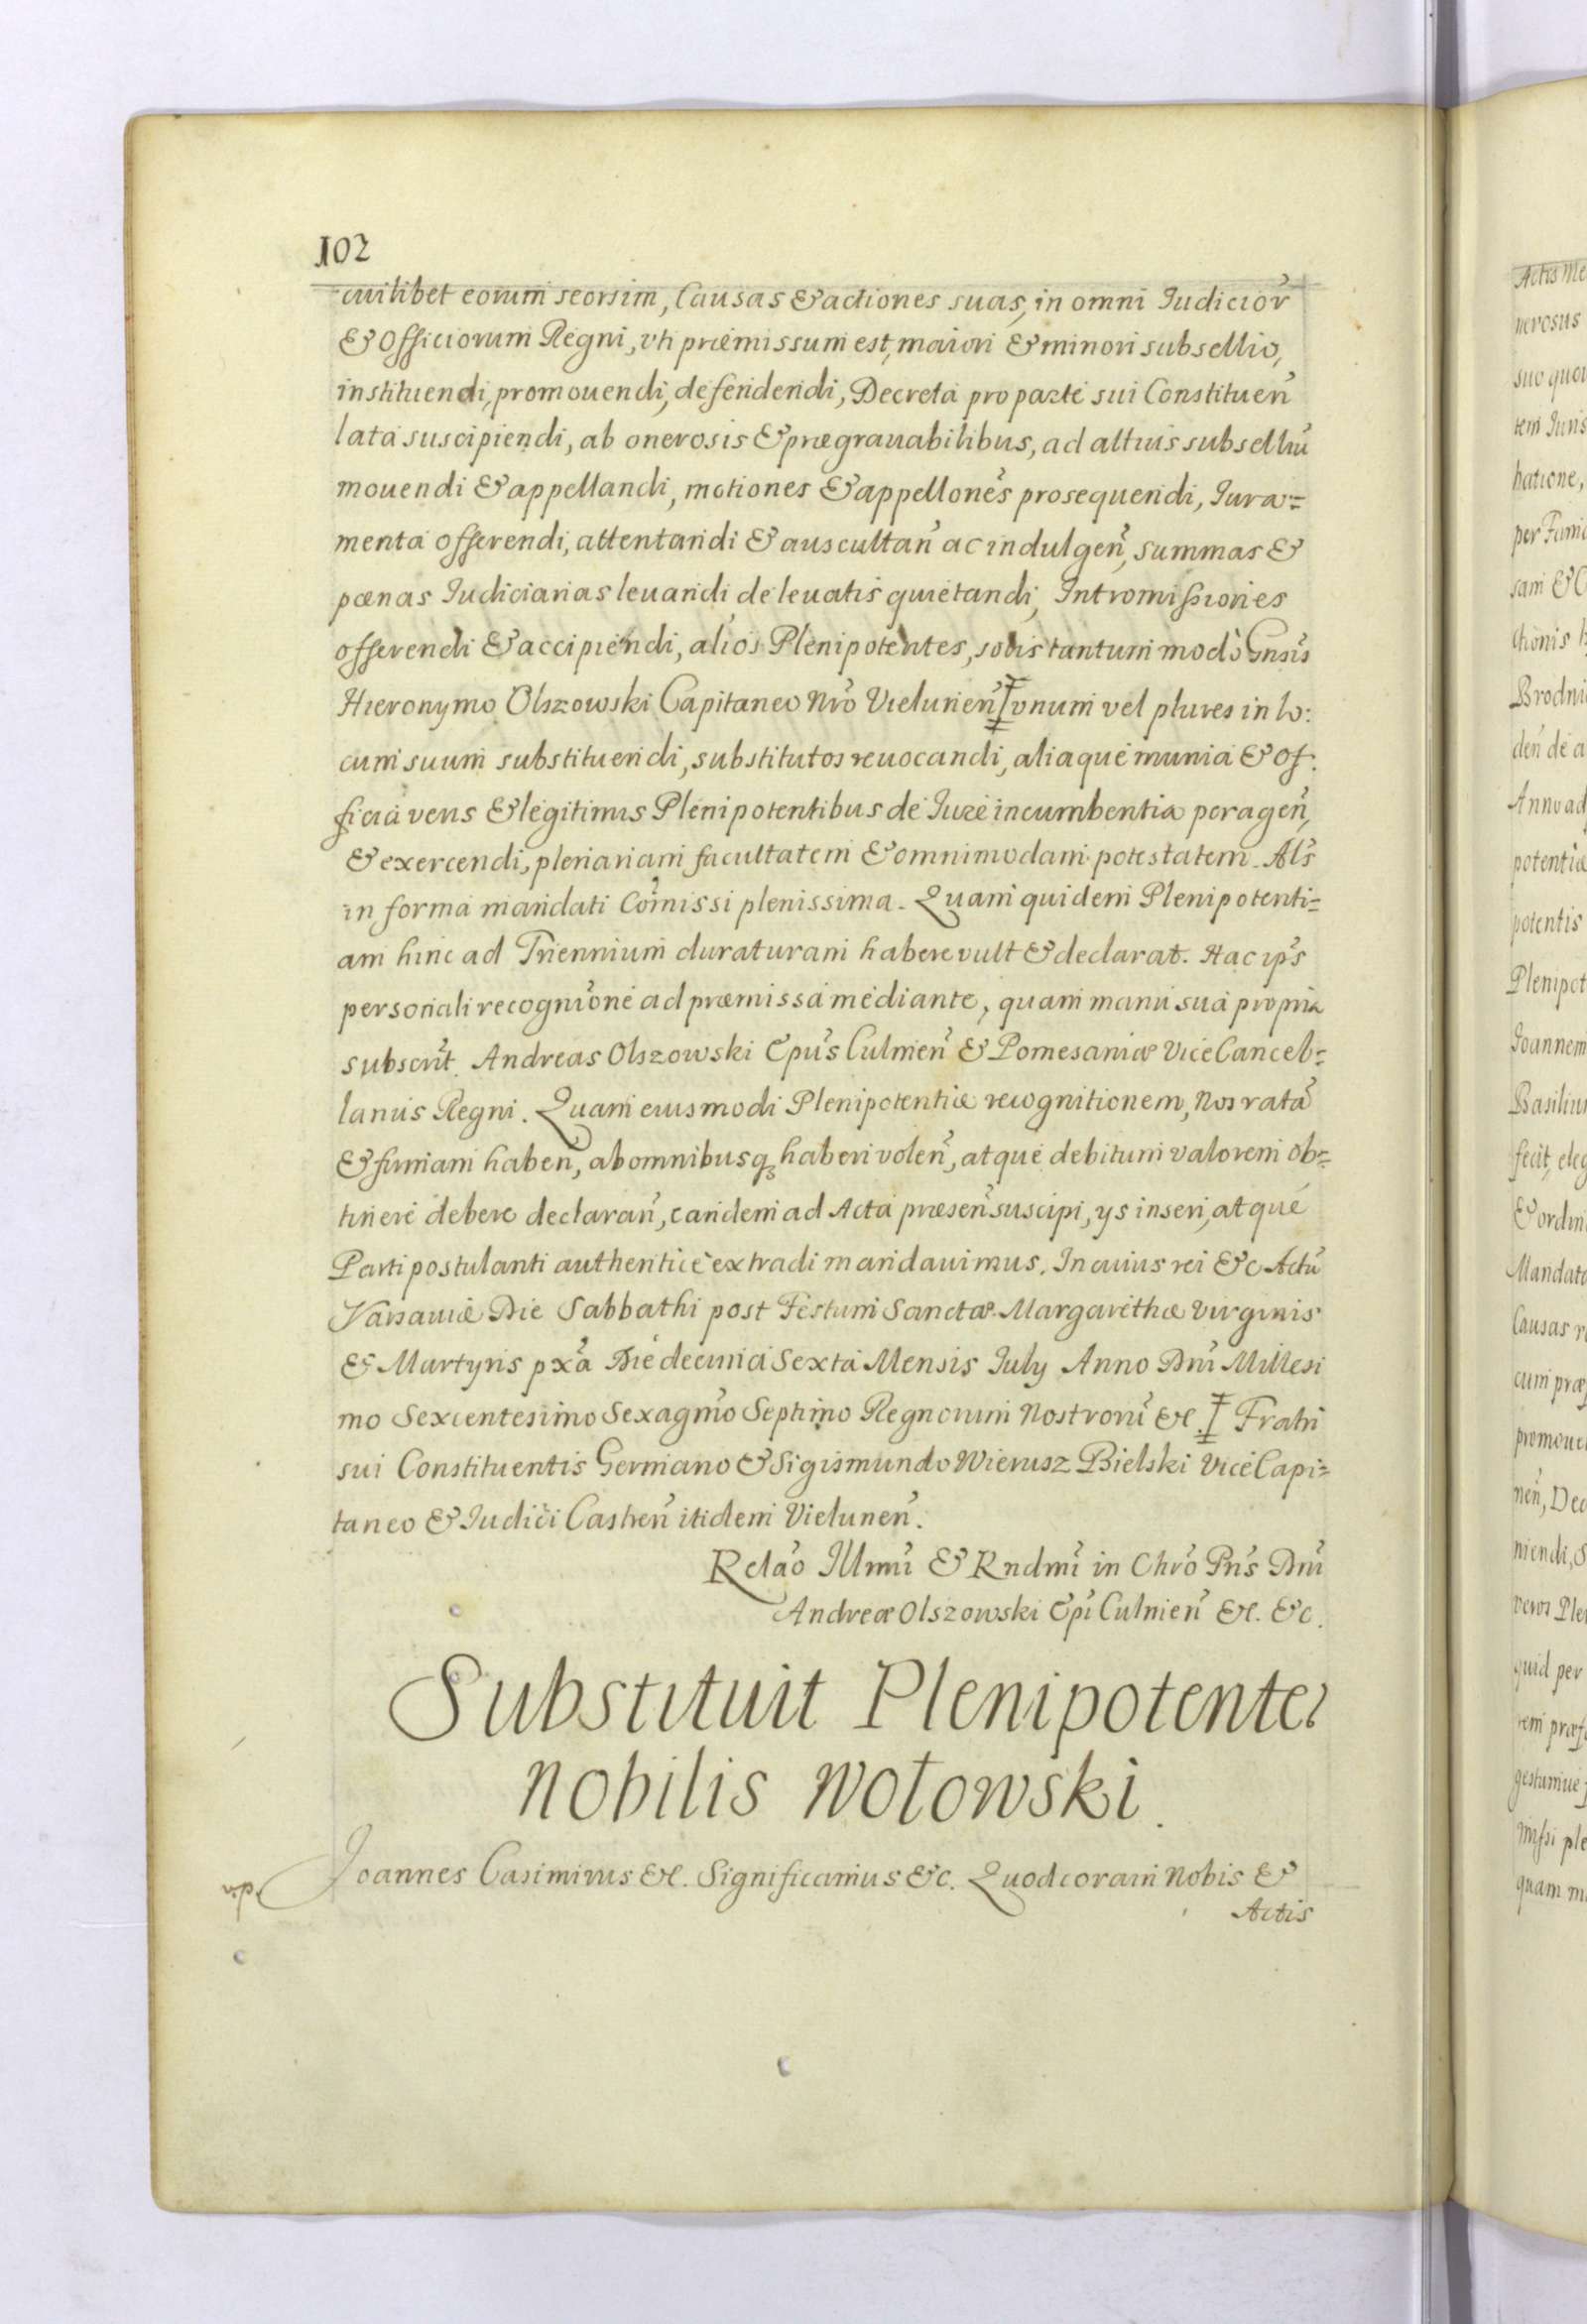 102
cuilibet eorum seorsim, Causas & actiones suas, in omni Iudicior̃
& Officiorum Regni, vti præmissum est, maiori & minori subsellio,
instituendi, promouendi, defendendi, Decreta pro parte sui Constituen̄
lata suscipiendi, ab onerosis & prægrauabilibus, ad altius subselliũ
mouendi & appellandi, motiones & appellones̃ prosequendi, Iura=
menta offerendi, attentandi & auscultan̄ ac indulgen̄, summas &
pœnas Iudiciarias leuandi, de leuatis quietandi, Intromissiones
offerendi & accipiendi, alios Plenipotentes, solis tantum modò Gnsis̃
Hieronymo Olszowski Capitaneo Nrõ Vielunen̄ ‡ vnum vel plures in lo:
cum suum substituendi, substitutos reuocandi, aliaque munia & of:
ficia veris & legitimis Plenipotentibus de Iure incumbentia peragen̄,
& exercendi, plenariam facultatem & omnimodam potestatem. Als̃
in forma mandati Com̃issi plenissima. Quam quidem Plenipotenti=
am hinc ad Triennium duraturam habere vult & declarat. Hac ips̃
personali recognĩone ad præmissa mediante, quam manu sua propria
subscrĩt. Andreas Olszowski Epũs Culmen̄ & Pomesaniæ ViceCancel=
larius Regni. Quam eiusmodi Plenipotentiæ recognitionem, Nos ratã
& firmam haben̄, ab omnibusq; haberi volen̄, atque debitum valorem ob=
tinere debere declaran̄, eandem ad Acta præsen̄ suscipi, ijs inseri, atque
Parti postulanti authentice extradi mandauimus. In cuius rei &c Actũ
Varsauiæ Die Sabbathi post Festum Sanctæ Margarethæ Virginis
& Martyris px̃a Die decima Sexta Mensis Iuly Anno Dnĩ Millesi
mo Sexcentesimo Sexagm̃o Septimo Regnorum Nostrorũ &c. ‡ Fratri
sui Constituentis Germano & Sigismundo Wierusz Bielski ViceCapi=
taneo & Iudici Castren̄ itidem Vielunen̄.
Relaõ Illmĩ & Rndmĩ in Chrõ Pñs Dnĩ
Andreæ Olszowski Epĩ Culmen̄ &c. &c.
Substituit Plenipotentes
nobilis Wotowski.
Joannes Casimirus &c. Significamus &c. Quod coram Nobis &
Actis